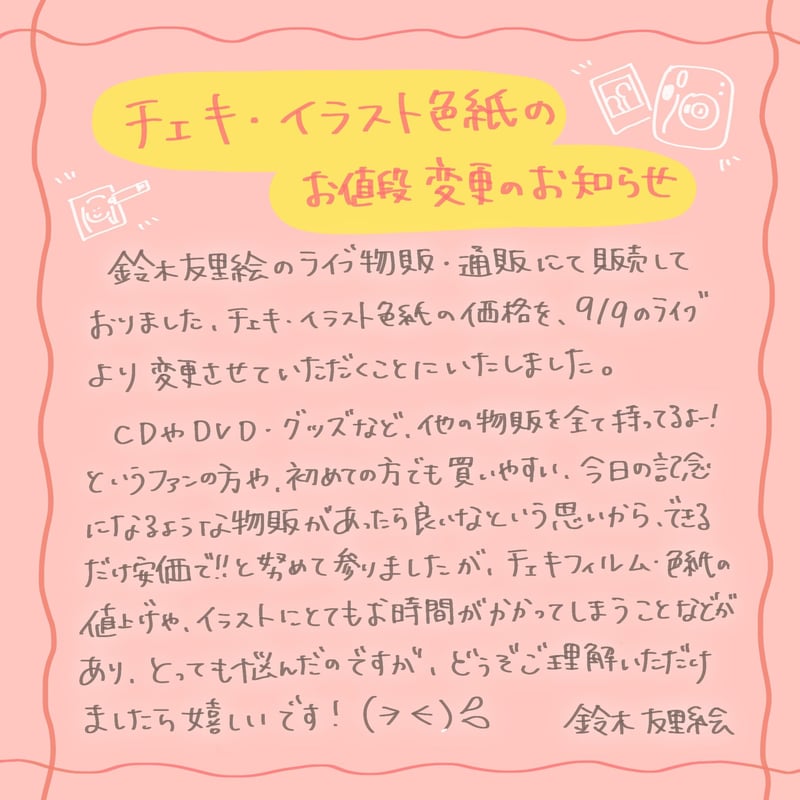 チェキ・イラスト色紙の
お値段 変更のお知らせ
鈴木友里絵のライブ物販・通販にて販売して
おりました、チェキ・イラスト色紙の価格を、9/9のライブ
より 変更させていただくことにいたしました。
CDやDVD・グッズなど、他の物販を全て持ってるよー!
というファンの方や、初めての方でも買いやすい、今日の記念
になるような物販があったら良いなという思いから、できる
だけ安価で!!と努めて参りましたが、チェキフィルム・色紙の
値上げや、イラストにとてもお時間がかかってしまうことなどが
あり、とっても悩んだのですが、どうぞご理解いただけ
ましたら嬉しいです!(><)
鈴木友里絵